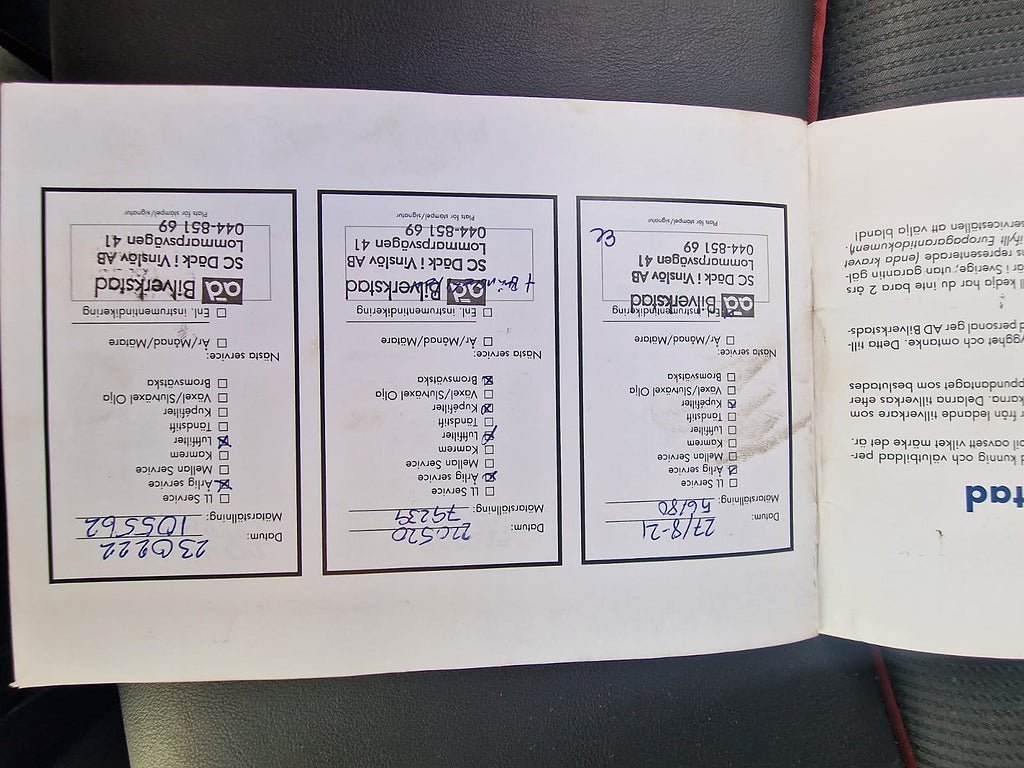 tad
d kunnig och välutbildad per-
bil oavsett vilket märke det är.
från ledande tillverkare som
karna. Delarna tillverkas efter
uppundantaget som beslutades
d personal ger AD Bilverkstads-
ygghet och omtanke. Detta till-
ll kedja har du inte bara 2 års
är i Sverige, utan garantin gäl-
s representerade (enda kravet
ifyllt Europagarantidokument).
serviceställen att välja bland!
Datum: 27/8-21
Mätarställning: 56180
LL Service
Årlig service
Mellan Service
Kamrem
Luftfilter
Tändstift
Kupéfilter
Växel/Slutväxel Olja
Bromsvätska
Nästa service:
År/Månad/Mätare
Enl. instrumentindikering
ad Bilverkstad
SC Däck i Vinslöv AB
Lommarpsvägen 41
044-851 69
Plats för stämpel/signatur
Datum: 220520
Mätarställning: 79239
LL Service
Årlig service
Mellan Service
Kamrem
Luftfilter
Tändstift
Kupéfilter
Växel/Slutväxel Olja
Bromsvätska
Nästa service:
År/Månad/Mätare
Enl. instrumentindikering
ad Bilverkstad
SC Däck i Vinslöv AB
Lommarpsvägen 41
044-851 69
Plats för stämpel/signatur
Datum: 230222
Mätarställning: 105562
LL Service
Årlig service
Mellan Service
Kamrem
Luftfilter
Tändstift
Kupéfilter
Växel/Slutväxel Olja
Bromsvätska
Nästa service:
År/Månad/Mätare
Enl. instrumentindikering
ad Bilverkstad
SC Däck i Vinslöv AB
Lommarpsvägen 41
044-851 69
Plats för stämpel/signatur